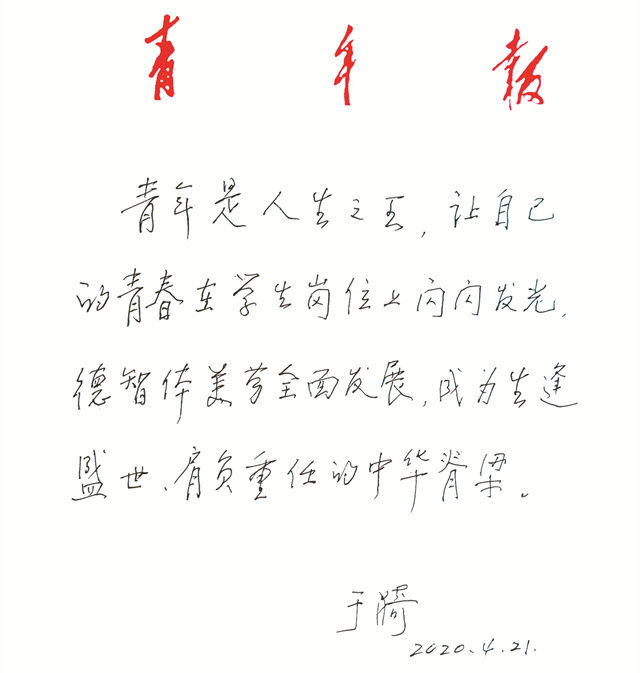 青年报
青年是人生之王，让自己
的青春在学生岗位上闪闪发光，
德智体美劳全面发展，成为生逢
盛世、肩负重任的中华脊梁。
于漪
2020.4.21.